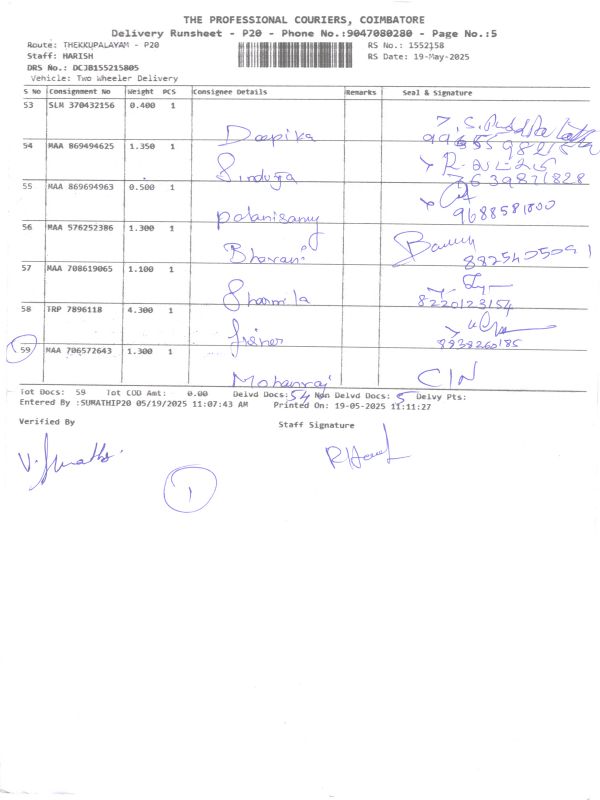 THE PROFESSIONAL COURIERS, COIMBATORE
Delivery Runsheet - P20 - Phone No.:9047080280 - Page No.:5
Route: THEKKUPALAYAM - P20 RS No.: 1552158
Staff: HARISH RS Date: 19-May-2025
DRS No.: DCJB155215805
Vehicle: Two Wheeler Delivery
S No Consignment No Weight PCS Consignee Details Remarks Seal & Signature
53 SLM 370432156 0.400 1
Deepika
54 MAA 869494625 1.350 1
Sinduja 7639871828
55 MAA 869694963 0.500 1
palanisamy 9688581800
56 MAA 576252386 1.300 1
Bhavani 8825405091
57 MAA 708619065 1.100 1
Sharmila 8220123154
58 TRP 7896118 4.300 1
8938260185
59 MAA 706572643 1.300 1
Mohanraj C/N
Tot Docs: 59 Tot COD Amt: 0.00 Delvd Docs: 54 Non Delvd Docs: 5 Delvy Pts:
Entered By :SUMATHIP20 05/19/2025 11:07:43 AM Printed On: 19-05-2025 11:11:27
Verified By Staff Signature
1